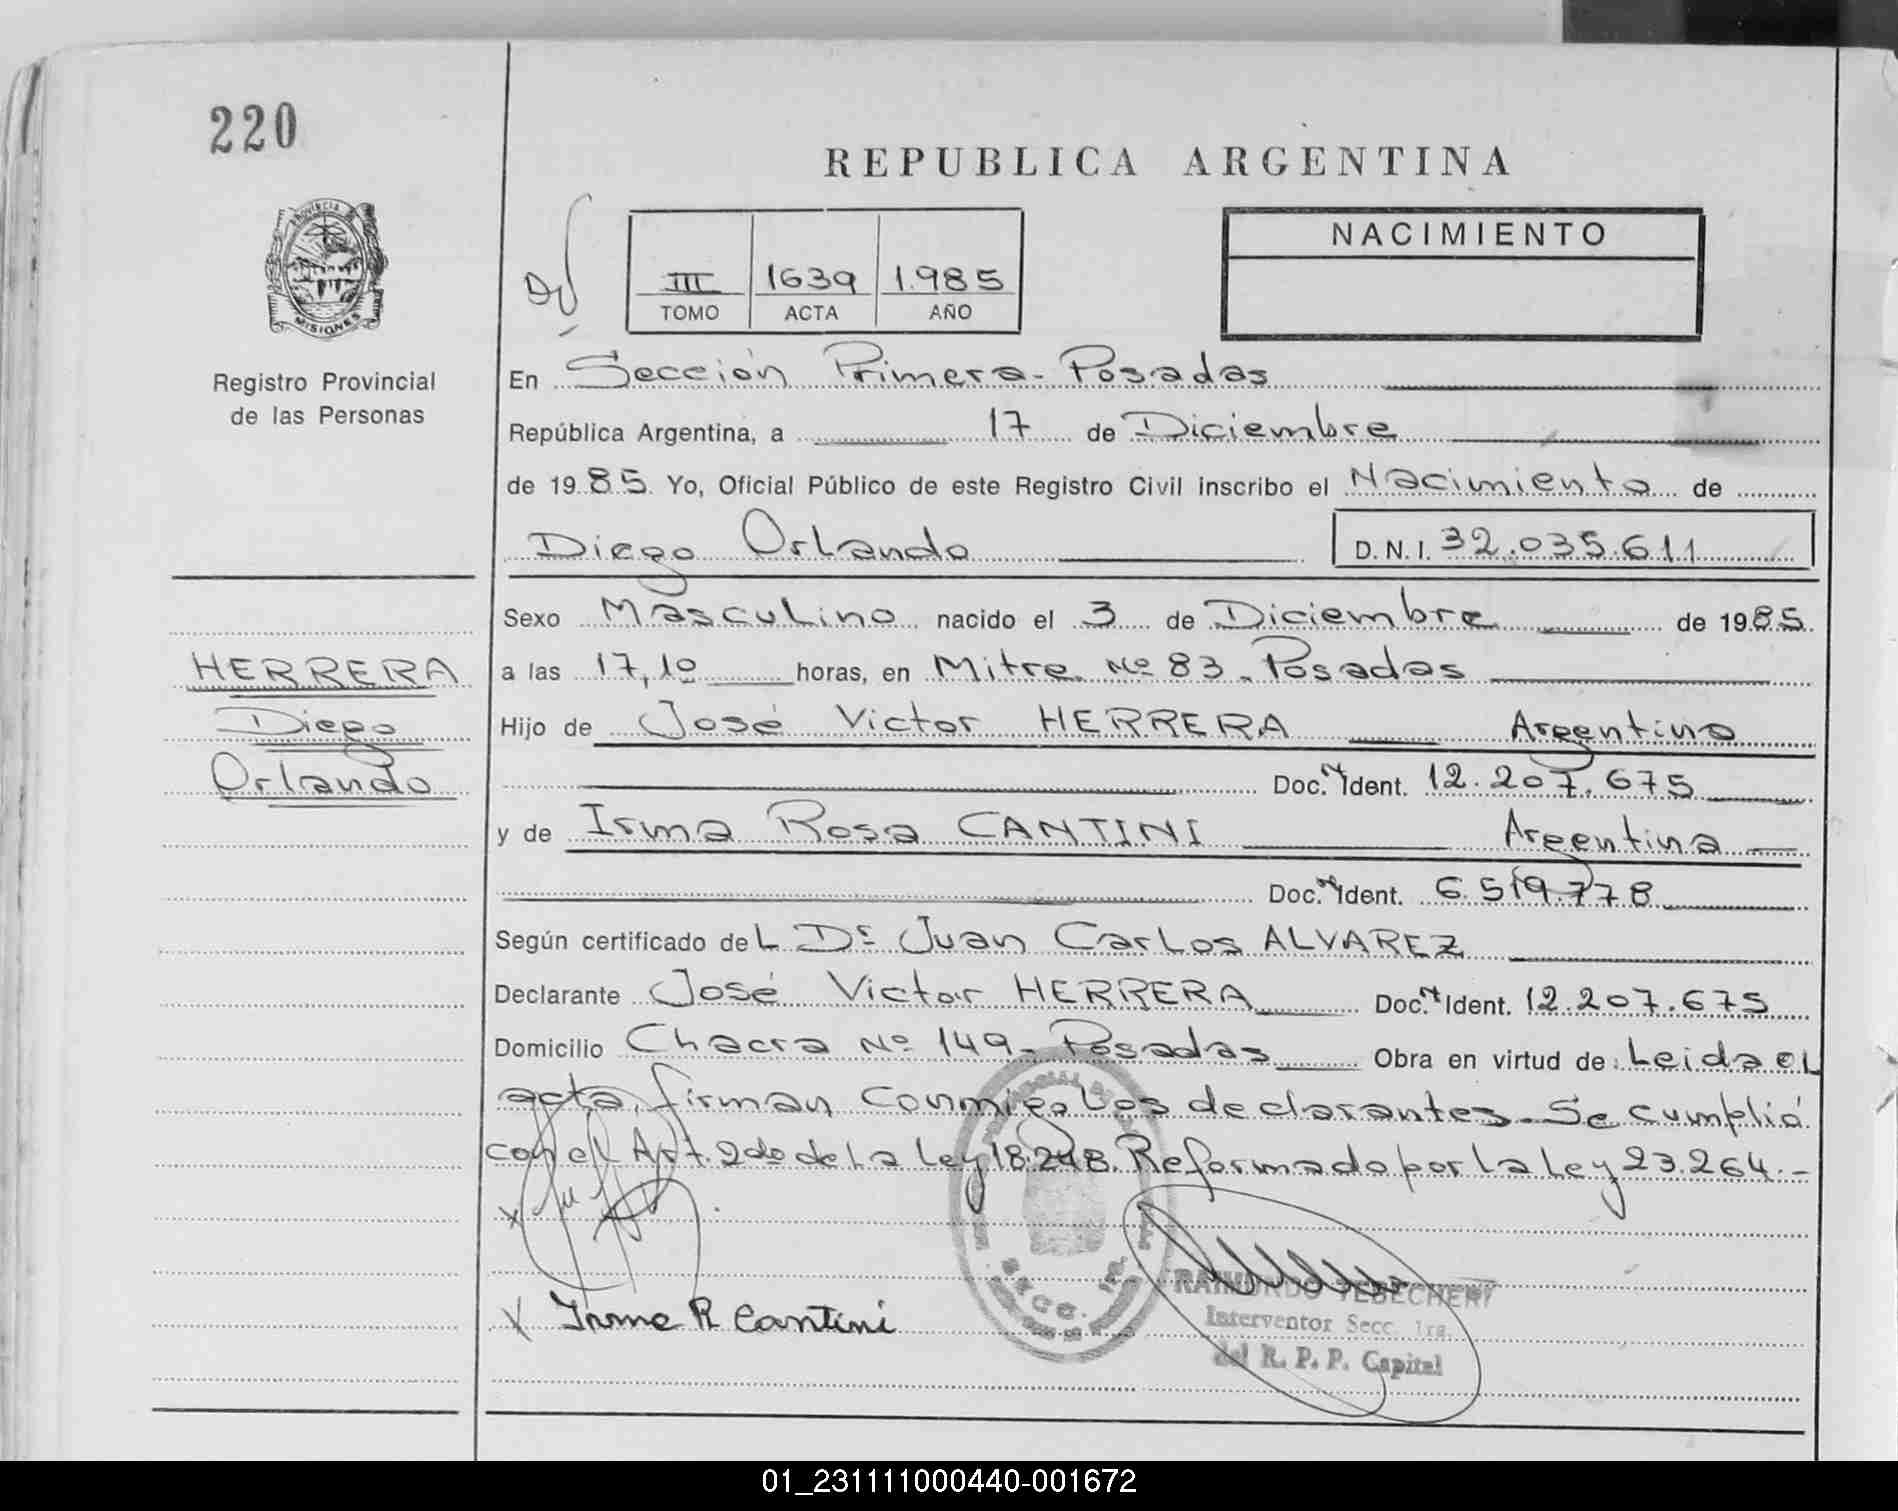 220
REPUBLICA ARGENTINA
PROVINCIA
MISIONES
Registro Provincial
de las Personas
III 1639 1.985
TOMO ACTA AÑO
NACIMIENTO
En Sección Primera - Posadas
República Argentina, a 17 de Diciembre
de 1985 Yo, Oficial Público de este Registro Civil inscribo el Nacimiento de
Diego Orlando D.N.I. 32.035.611
Sexo Masculino nacido el 3 de Diciembre de 1985
a las 17,10 horas, en Mitre Nº 83 - Posadas
HERRERA
Diego
Orlando
Hijo de José Victor HERRERA Argentino
Doc. Nl Ident. 12.207.675
y de Irma Rosa CANTINI Argentina
Doc. Nl Ident. 6.519.778
Según certificado del Dr Juan Carlos ALVAREZ
Declarante José Victor HERRERA Doc. Nl Ident. 12.207.675
Domicilio Chacra Nº 149 - Posadas Obra en virtud de: Leida el
acta, firman conmigo los declarantes. Se cumplió
con el Art. 2do de la Ley 18.248. Reformado por la Ley 23.264.-
x
x Irma R Cantini
SECC. 1ra.
RAIMUNDO TEBECHERY
Interventor Secc. 1ra.
del R. P. P. Capital
01_231111000440-001672